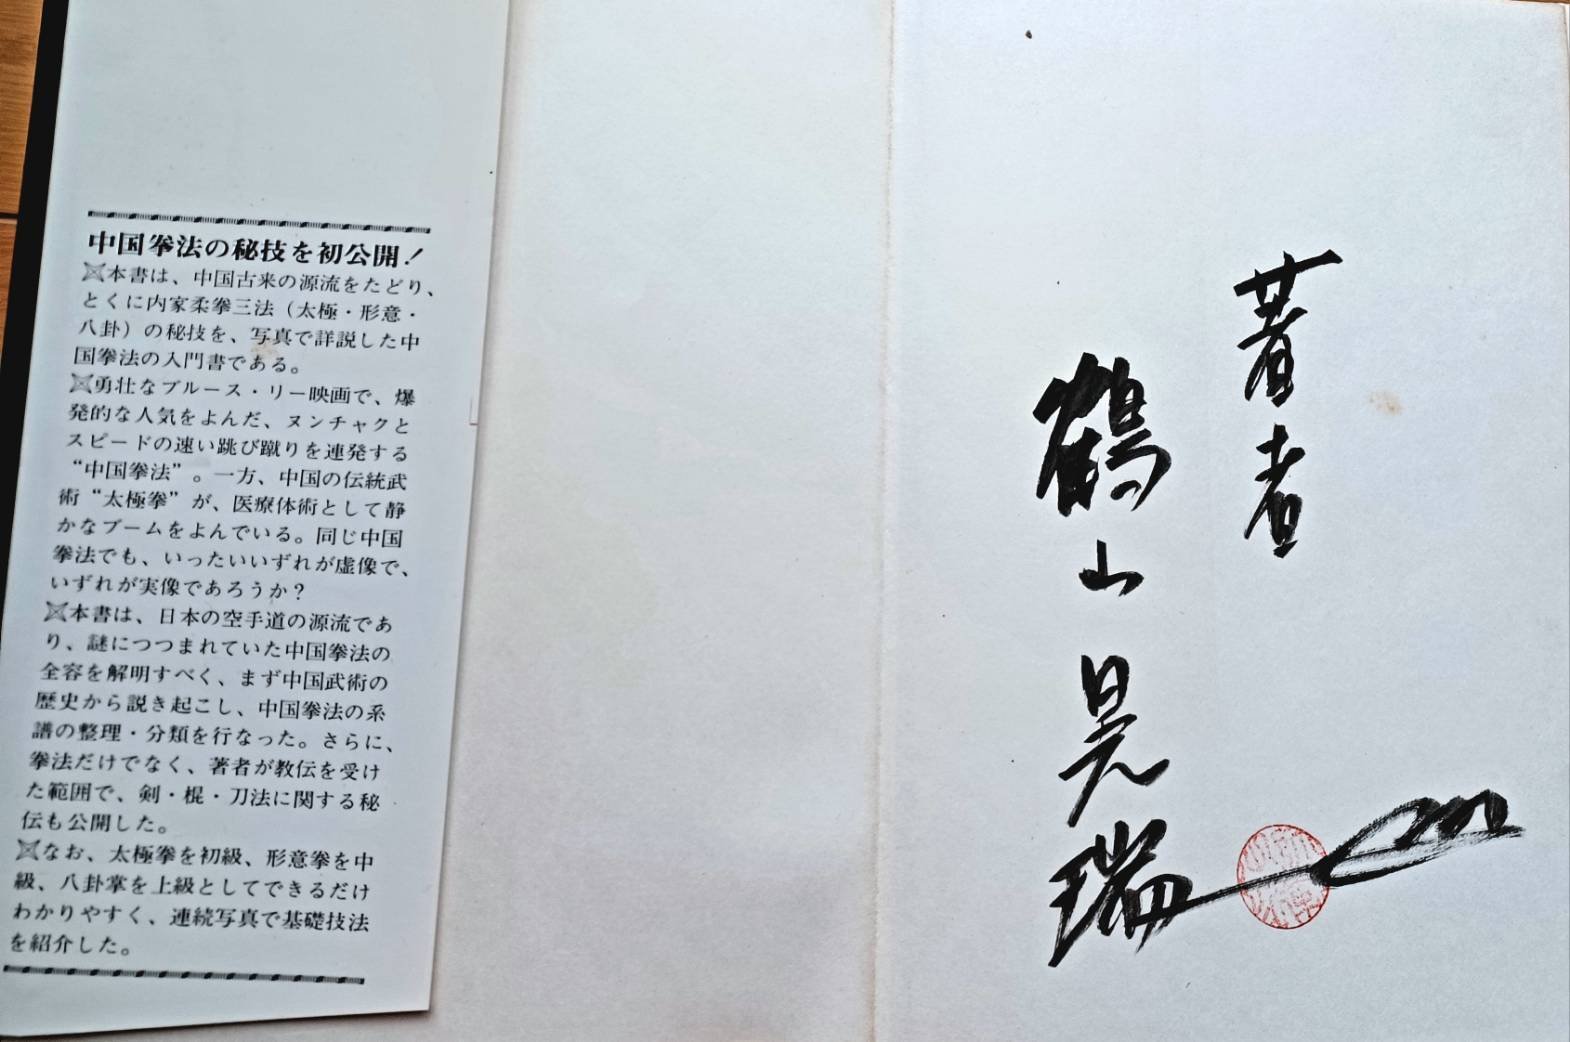 中国拳法の秘技を初公開！
本書は、中国古来の源流をたどり、
とくに内家柔拳三法（太極・形意・
八卦）の秘技を、写真で詳説した中
国拳法の入門書である。
勇壮なブルース・リー映画で、爆
発的な人気をよんだ、ヌンチャクと
スピードの速い跳び蹴りを連発する
“中国拳法”。一方、中国の伝統武
術“太極拳”が、医療体術として静
かなブームをよんでいる。同じ中国
拳法でも、いったいいずれが虚像で、
いずれが実像であろうか？
本書は、日本の空手道の源流であ
り、謎につつまれていた中国拳法の
全容を解明すべく、まず中国武術の
歴史から説き起こし、中国拳法の系
譜の整理・分類を行なった。さらに、
拳法だけでなく、著者が教伝を受け
た範囲で、剣・棍・刀法に関する秘
伝も公開した。
なお、太極拳を初級、形意拳を中
級、八卦掌を上級としてできるだけ
わかりやすく、連続写真で基礎技法
を紹介した。
著者
鶴山晃瑞